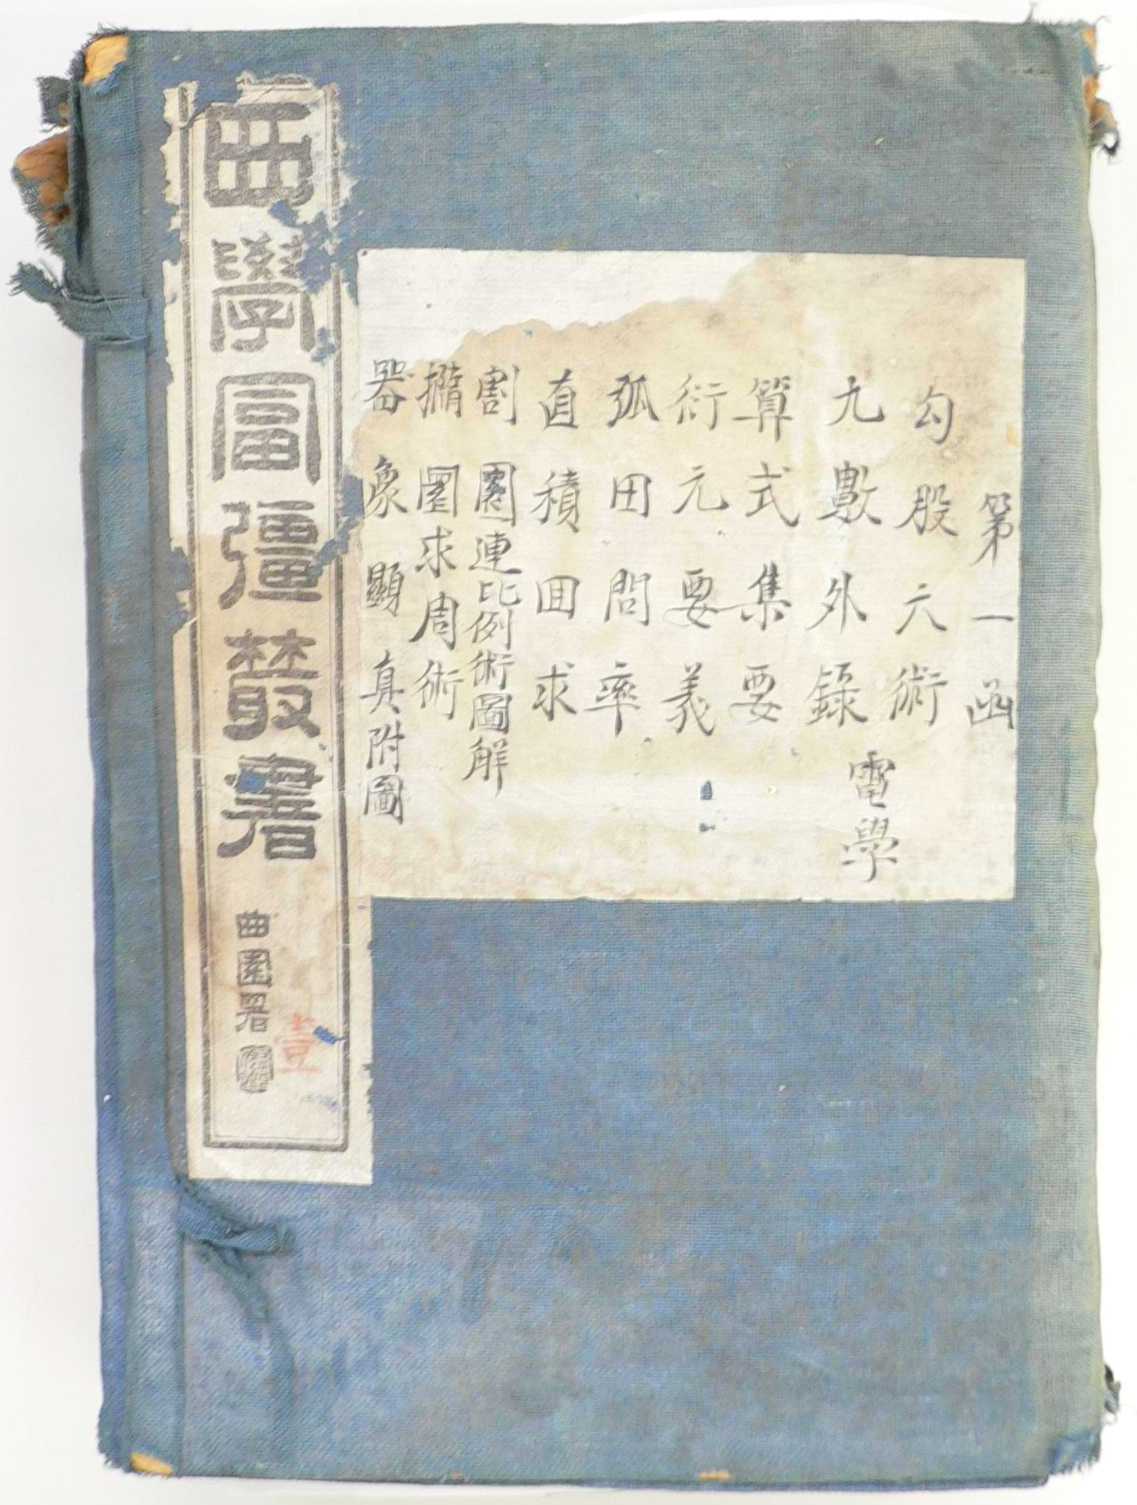 第一函
勾股六術
九數外錄 電學
算式集要
衍元要義
弧田問率
直積回求
割圜連比例術圖解
橢圜求周術
器象顯真附圖
西學富彊叢書
曲園署
壹